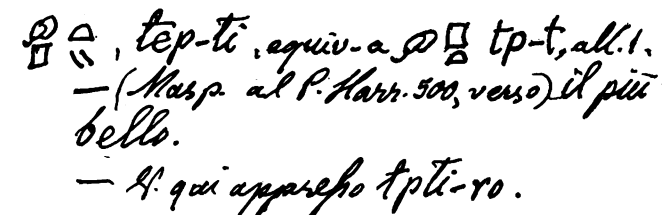 , tēp-ti, equiv-a tp-t, all.1.
— (Masp. al P. Harr. 500, verso) il più
bello.
— V. qui appresso tpti-ro.